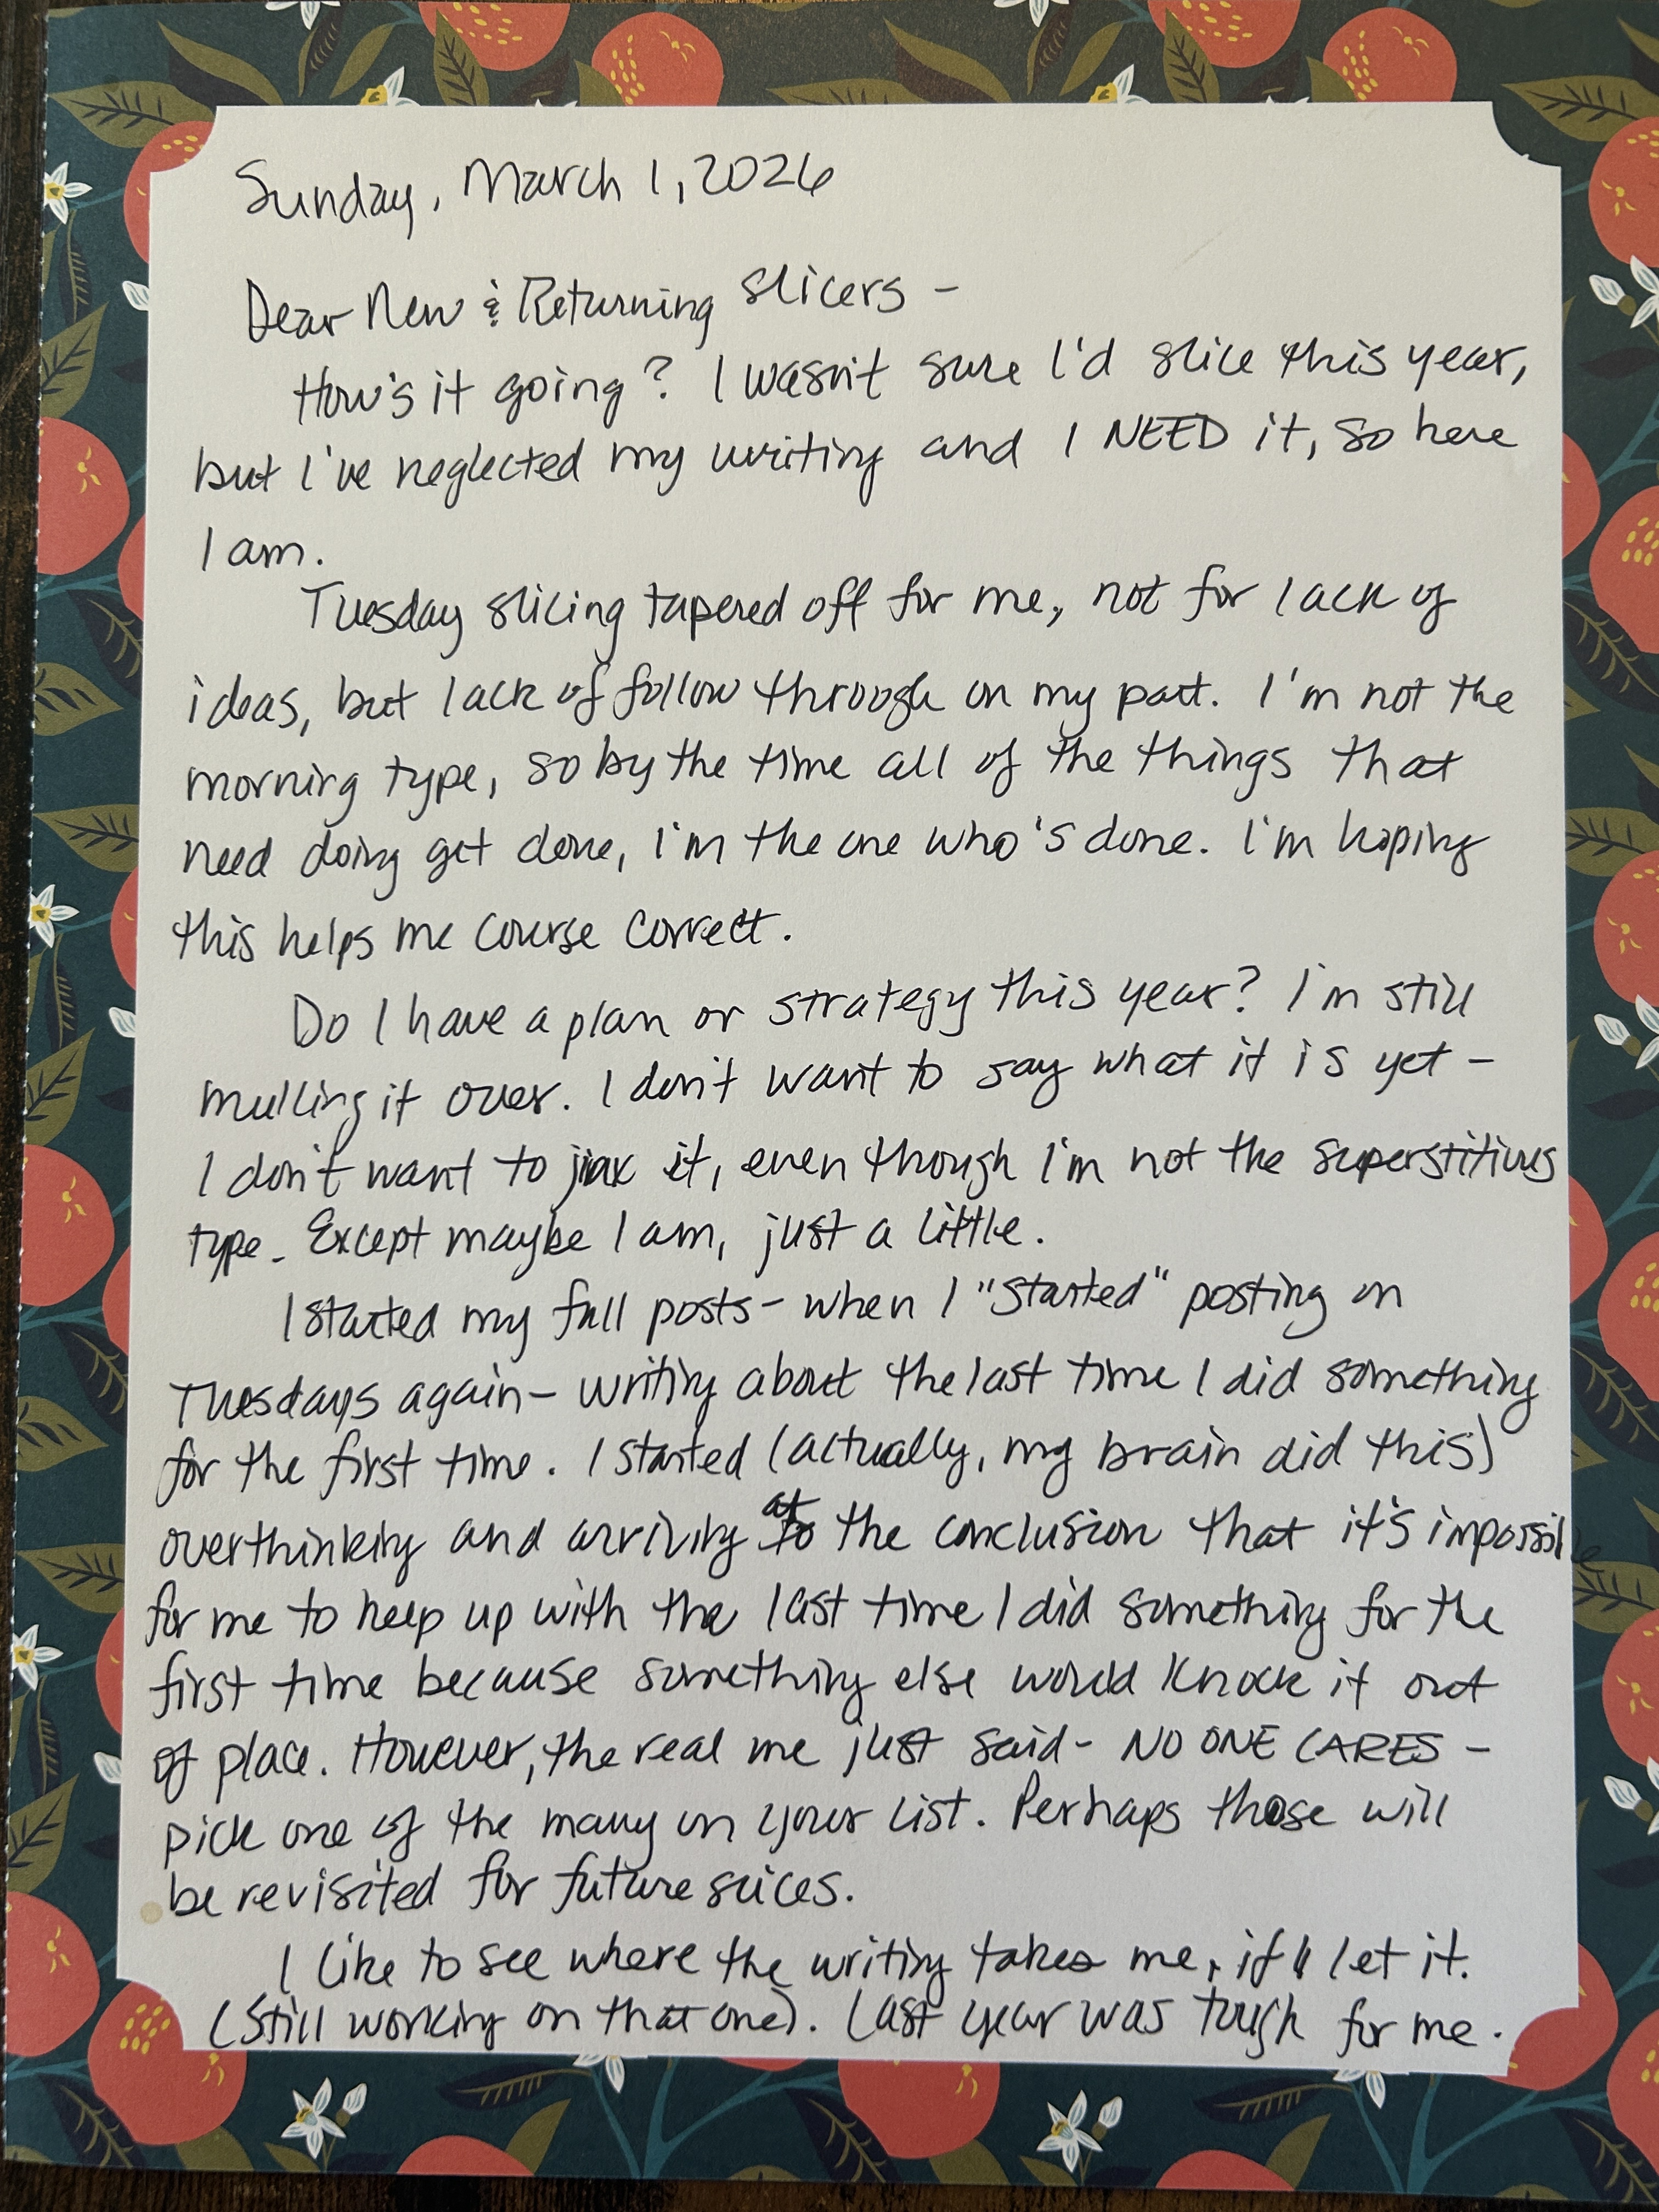 Sunday, March 1, 2026
Dear New & Returning Slicers -
How's it going? I wasn't sure I'd slice this year,
but I've neglected my writing and I NEED it, so here
I am.
Tuesday slicing tapered off for me, not for lack of
ideas, but lack of follow through on my part. I'm not the
morning type, so by the time all of the things that
need doing get done, I'm the one who's done. I'm hoping
this helps me course correct.
Do I have a plan or strategy this year? I'm still
mulling it over. I don't want to say what it is yet -
I don't want to jinx it, even though I'm not the superstitious
type. Except maybe I am, just a little.
I started my fall posts - when I "started" posting on
Tuesdays again - writing about the last time I did something
for the first time. I started (actually, my brain did this)
overthinking and arriving at the conclusion that it's impossible
for me to keep up with the last time I did something for the
first time because something else would knock it out
of place. However, the real me just said - NO ONE CARES -
pick one of the many on your list. Perhaps those will
be revisited for future slices.
I like to see where the writing takes me, if I let it.
(Still working on that one). Last year was tough for me.